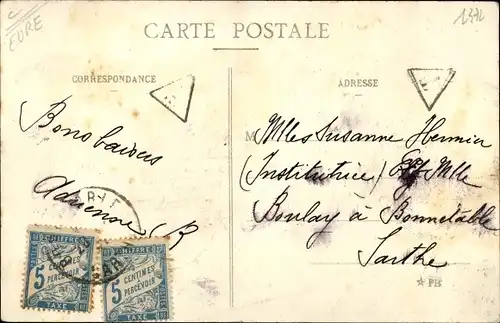 EURE
1372
CARTE POSTALE
CORRESPONDANCE
ADRESSE
T
T
Bons baisers
Adrienne R
M
Mlles Susanne Hermier
(Institutrice) Mlle
Boulay à Bonnétable
Sarthe
CHIFFRE
5 CENTIMES
À PERCEVOIR
TAXE
CHIFFRE
5 CENTIMES
À PERCEVOIR
TAXE
PB